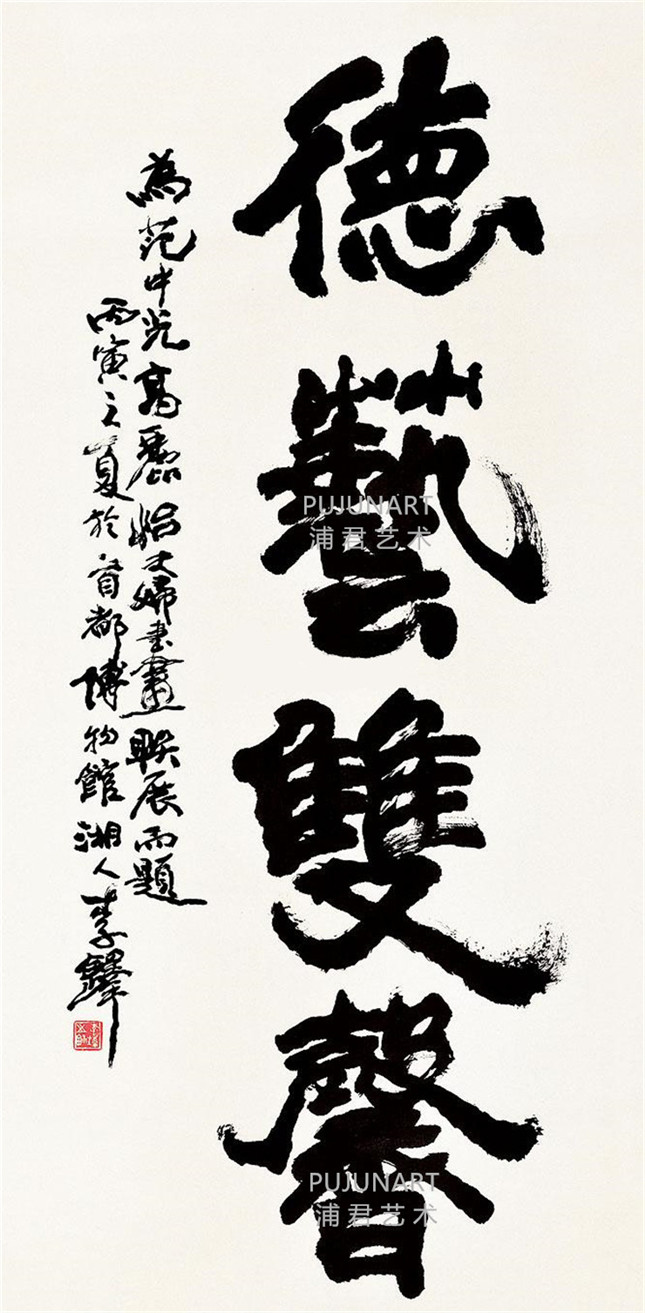 德藝雙馨
為范中光高麗娟夫婦書畫聯展而題
丙寅之夏於首都博物館湘人李鐸
PUJUNART
浦君艺术
PUJUNART
浦君艺术